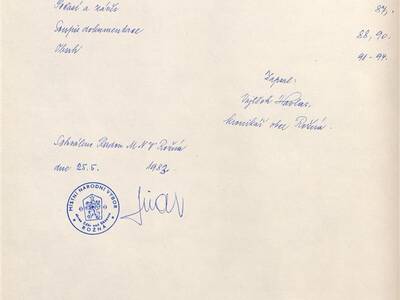 Počasí a závěr 87,-
Soupis dokumentace 88, 90.
Obsah 91-94.
Zapsal:
Vojtěch Havlas.
kronikář obce Rožná.
Schváleno Radou M N V Rožná
dne 25.5. 1983
MÍSTNÍ NÁRODNÍ VÝBOR
ROŽNÁ